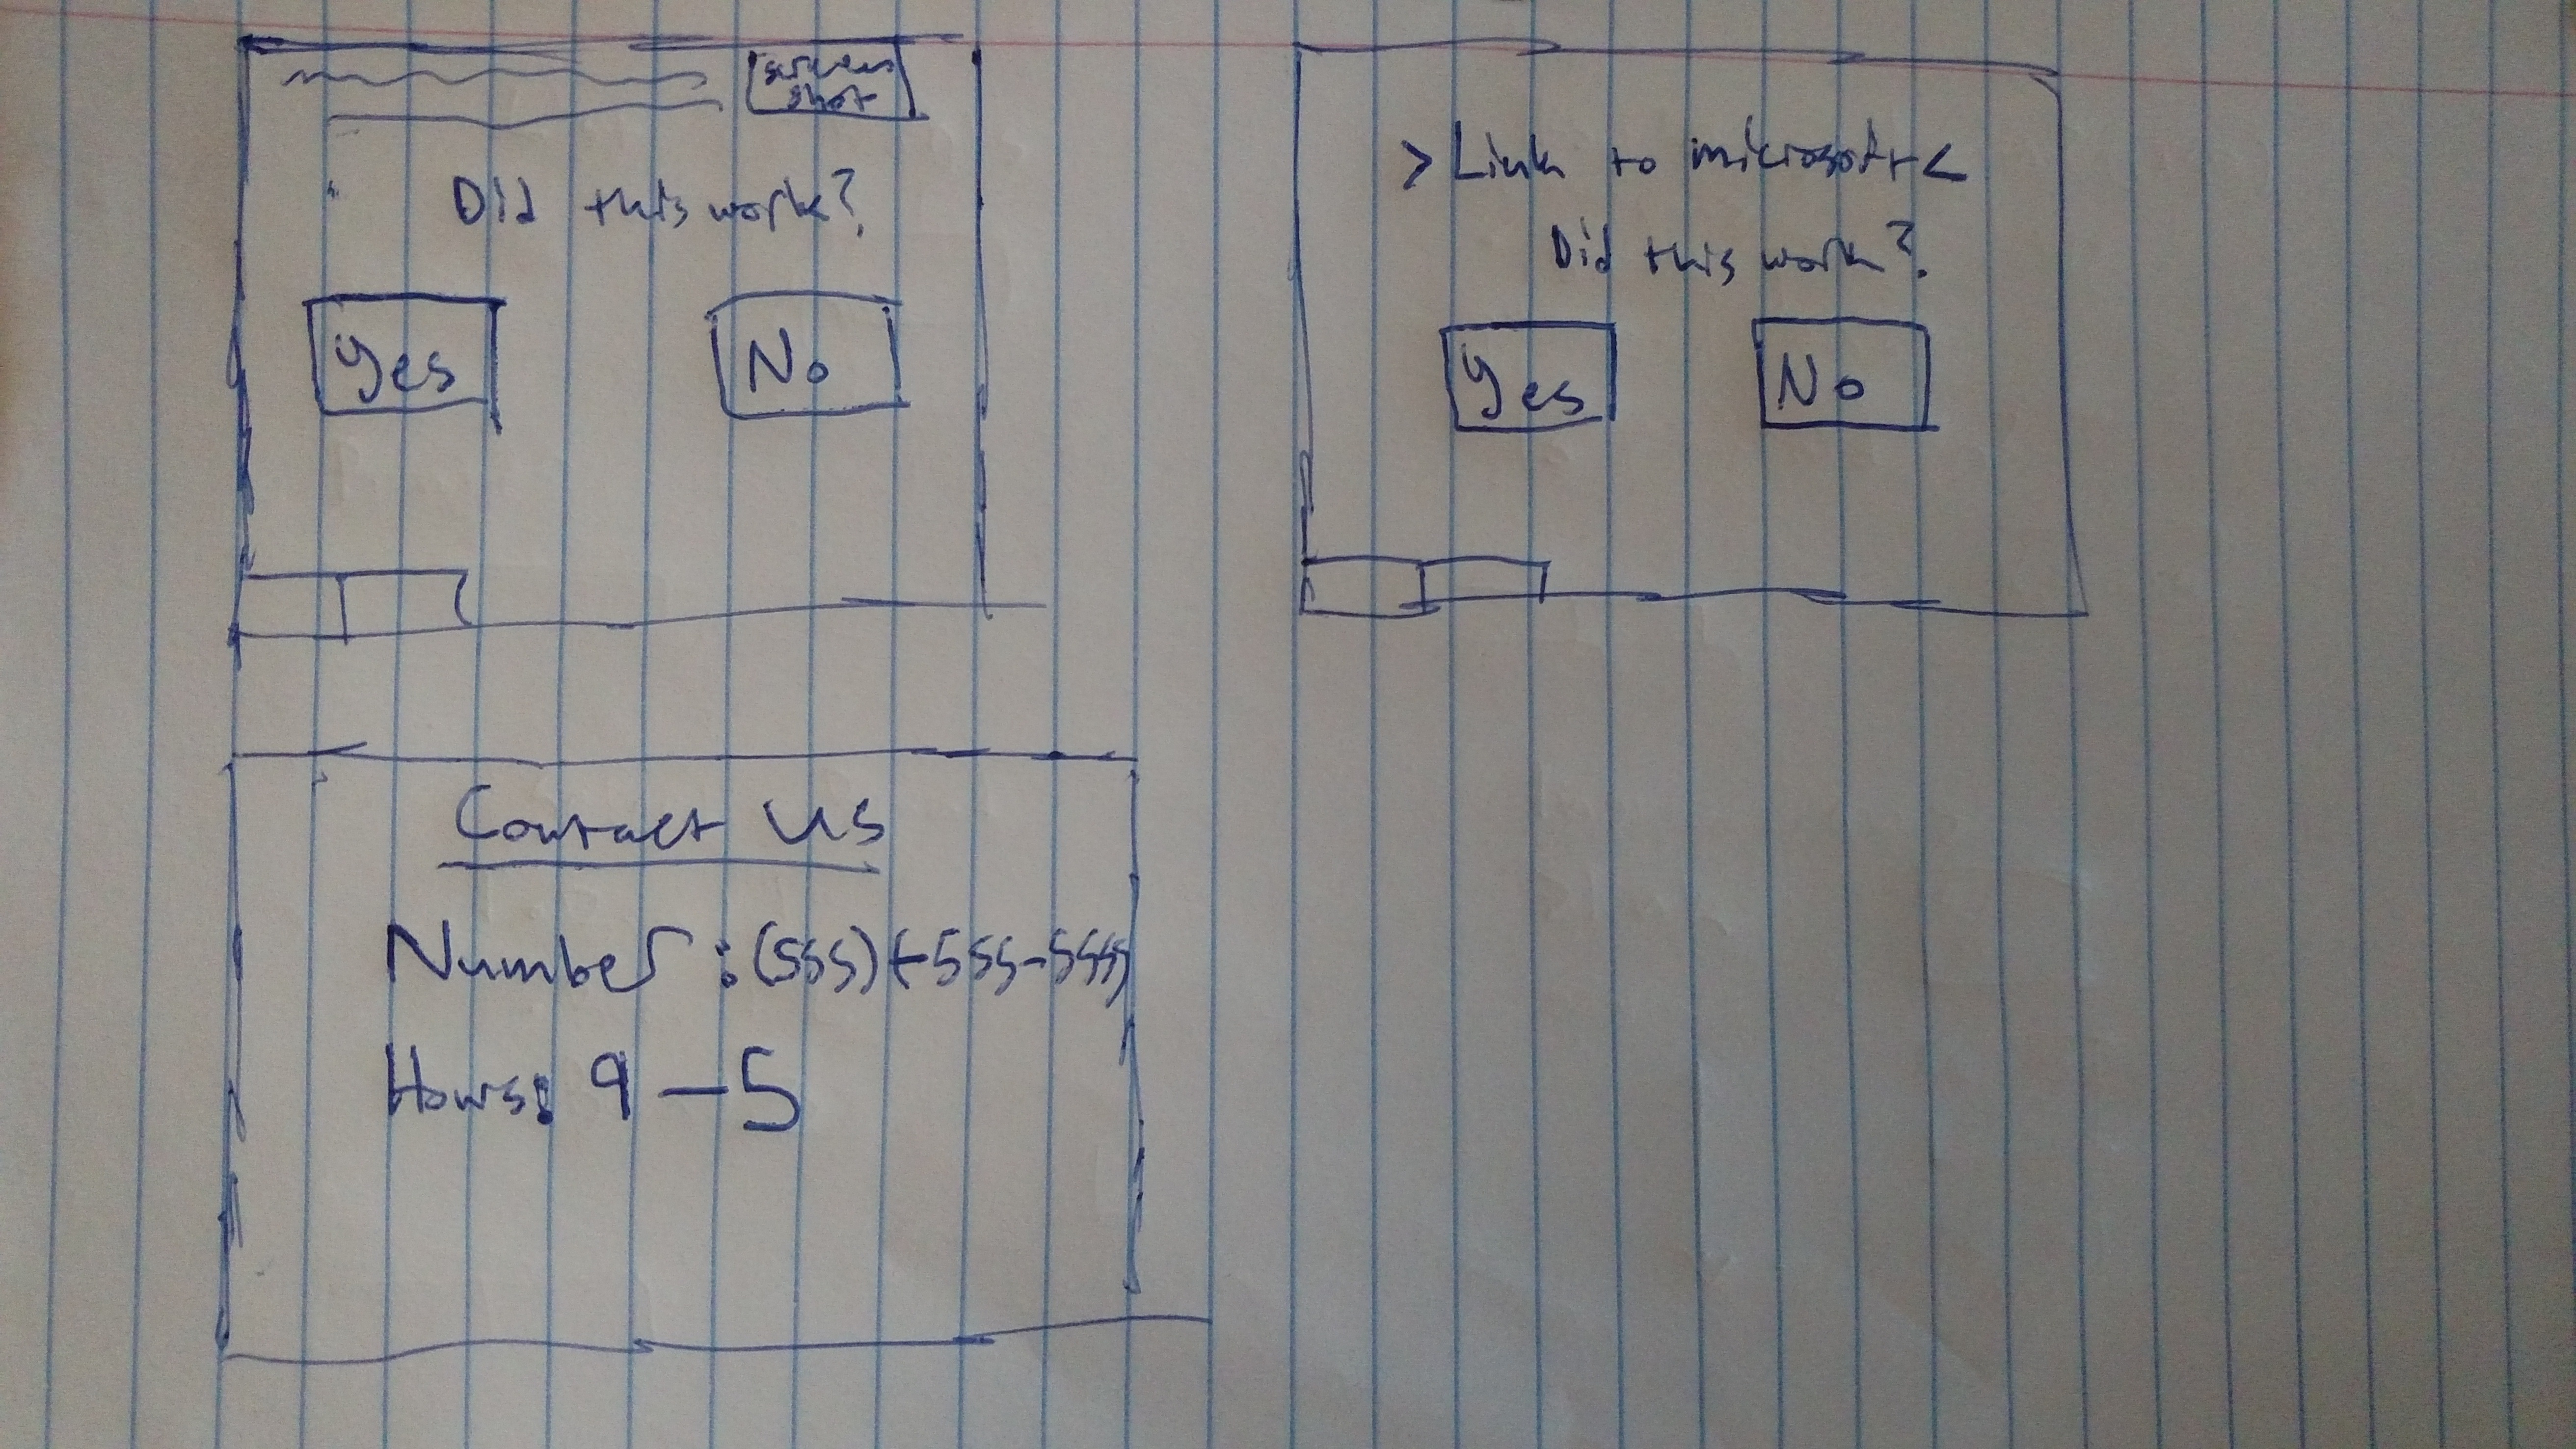 screen
shot
Did this work?
Yes
No
>Link to microsoft<
Did this work?
Yes
No
Contact Us
Number:(555)+555-5555
Hours: 9-5